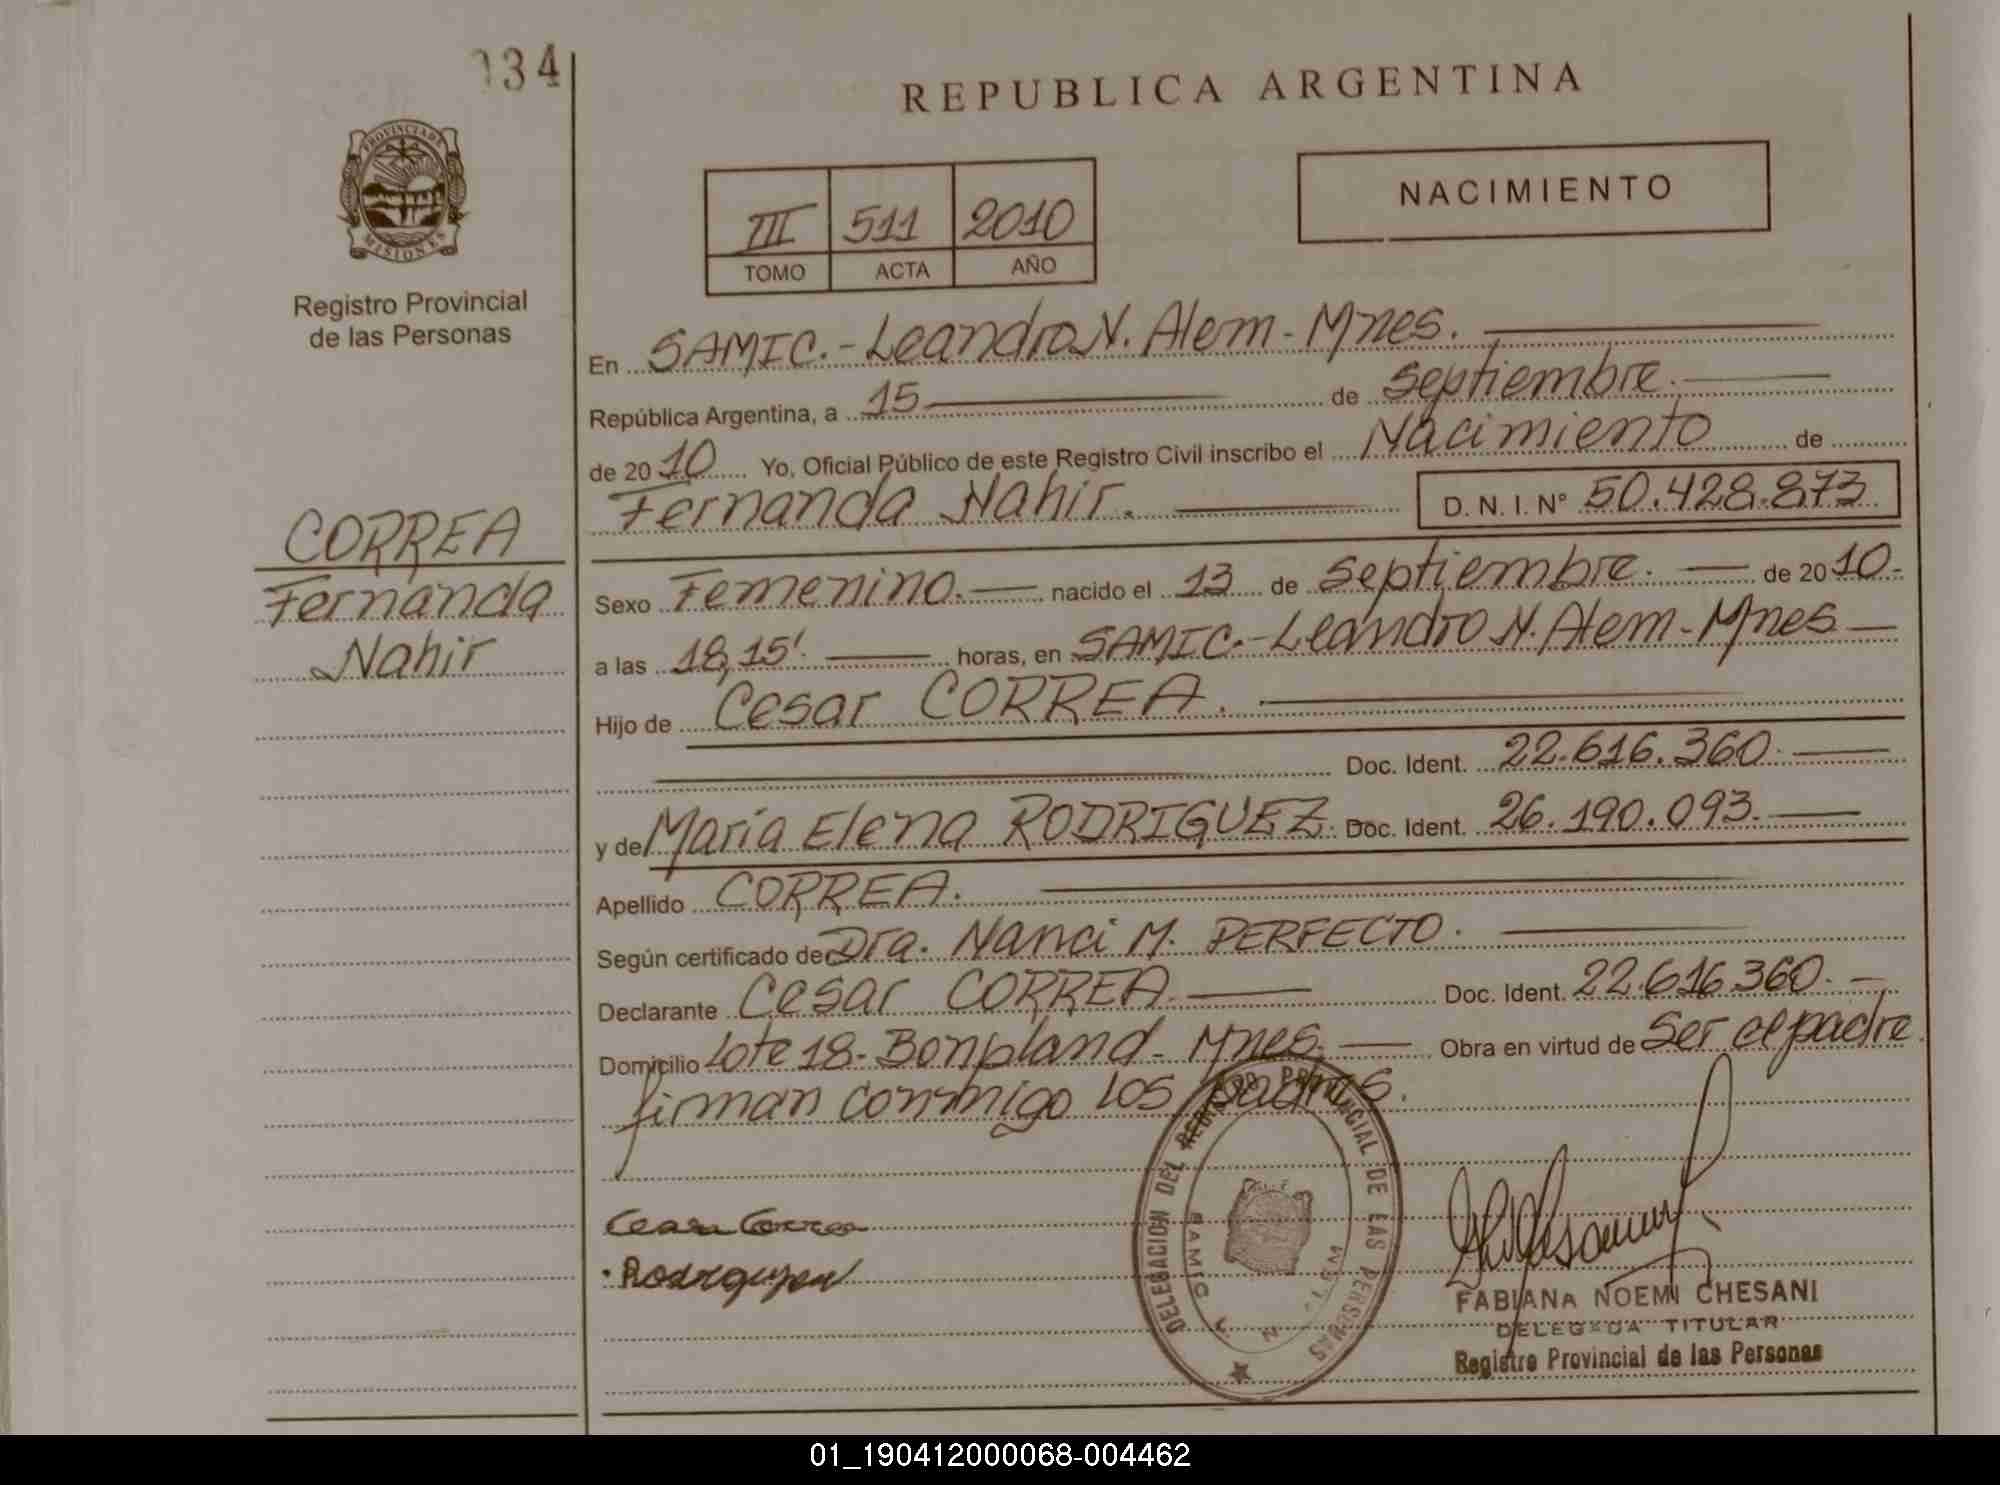 034
REPUBLICA ARGENTINA
PROVINCIA DE
MISIONES
Registro Provincial
de las Personas
III 511 2010
TOMO ACTA AÑO
NACIMIENTO
En SAMIC.-Leandro N. Alem-Mnes.
República Argentina, a 15 de Septiembre.
de 2010 Yo, Oficial Público de este Registro Civil inscribo el Nacimiento de
Fernanda Nahir. D. N. I. Nº 50.428.873
CORREA
Fernanda
Nahir
Sexo Femenino. nacido el 13 de Septiembre. de 2010.
a las 18,15'. horas, en SAMIC.-Leandro N. Alem-Mnes
Hijo de Cesar CORREA.
Doc. Ident. 22.616.360.
y de Maria Elena RODRIGUEZ. Doc. Ident. 26.190.093.
Apellido CORREA.
Según certificado de Dra. Nanci M. PERFECTO.
Declarante Cesar CORREA Doc. Ident. 22.616.360.
Domicilio Lote 18-Bonpland-Mnes. Obra en virtud de Ser el padre
firman conmigo los padres.
Cesar Correa
Rodriguez
DELEGACION DEL REGISTRO PROVINCIAL DE LAS PERSONAS
SAMIC
FABIANA NOEMI CHESANI
DELEGADA TITULAR
Registro Provincial de las Personas
01_190412000068-004462